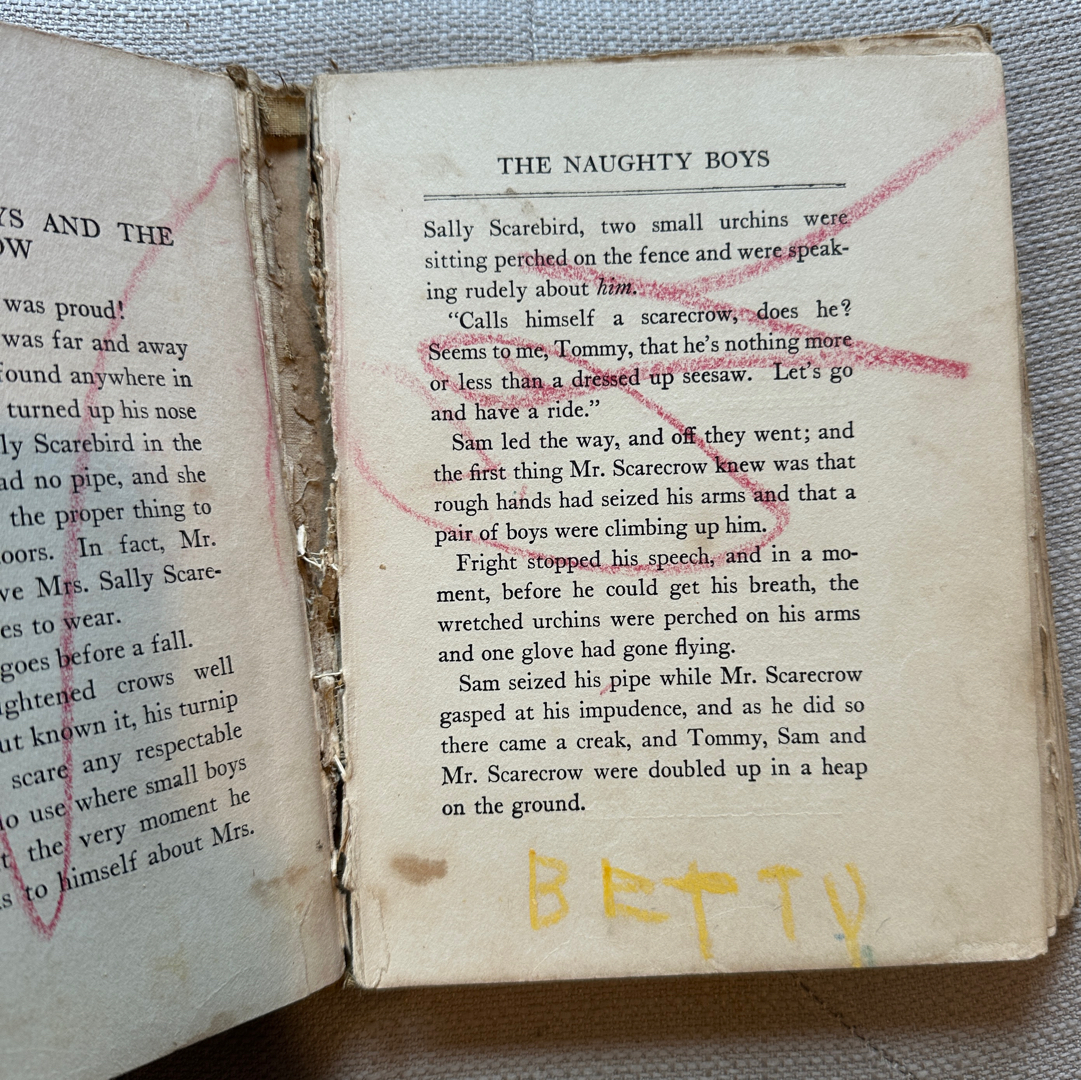 YS AND THE
OW
was proud!
was far and away
found anywhere in
turned up his nose
ly Scarebird in the
ad no pipe, and she
the proper thing to
oors. In fact, Mr.
ve Mrs. Sally Scare-
es to wear.
goes before a fall.
ightened crows well
ut known it, his turnip
scare any respectable
o use where small boys
t the very moment he
s to himself about Mrs.
THE NAUGHTY BOYS
Sally Scarebird, two small urchins were
sitting perched on the fence and were speak-
ing rudely about him.
“Calls himself a scarecrow, does he?
Seems to me, Tommy, that he’s nothing more
or less than a dressed up seesaw. Let’s go
and have a ride.”
Sam led the way, and off they went; and
the first thing Mr. Scarecrow knew was that
rough hands had seized his arms and that a
pair of boys were climbing up him.
Fright stopped his speech, and in a mo-
ment, before he could get his breath, the
wretched urchins were perched on his arms
and one glove had gone flying.
Sam seized his pipe while Mr. Scarecrow
gasped at his impudence, and as he did so
there came a creak, and Tommy, Sam and
Mr. Scarecrow were doubled up in a heap
on the ground.
BETTY